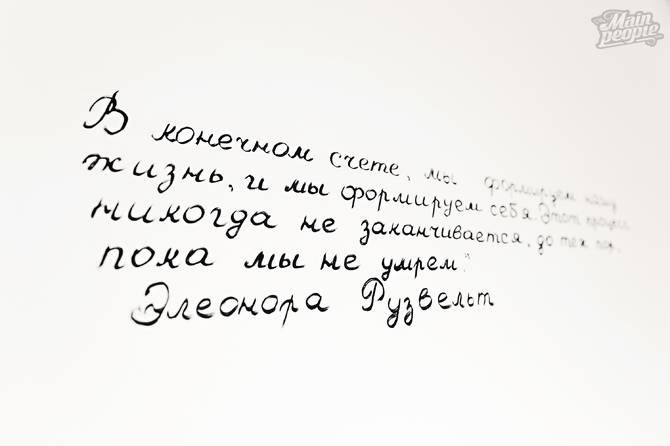 Main
people
В конечном счете, мы формируем нашу
жизнь, и мы формируем себя. Этот процесс
никогда не заканчивается, до тех пор,
пока мы не умрем."
Элеонора Рузвельт